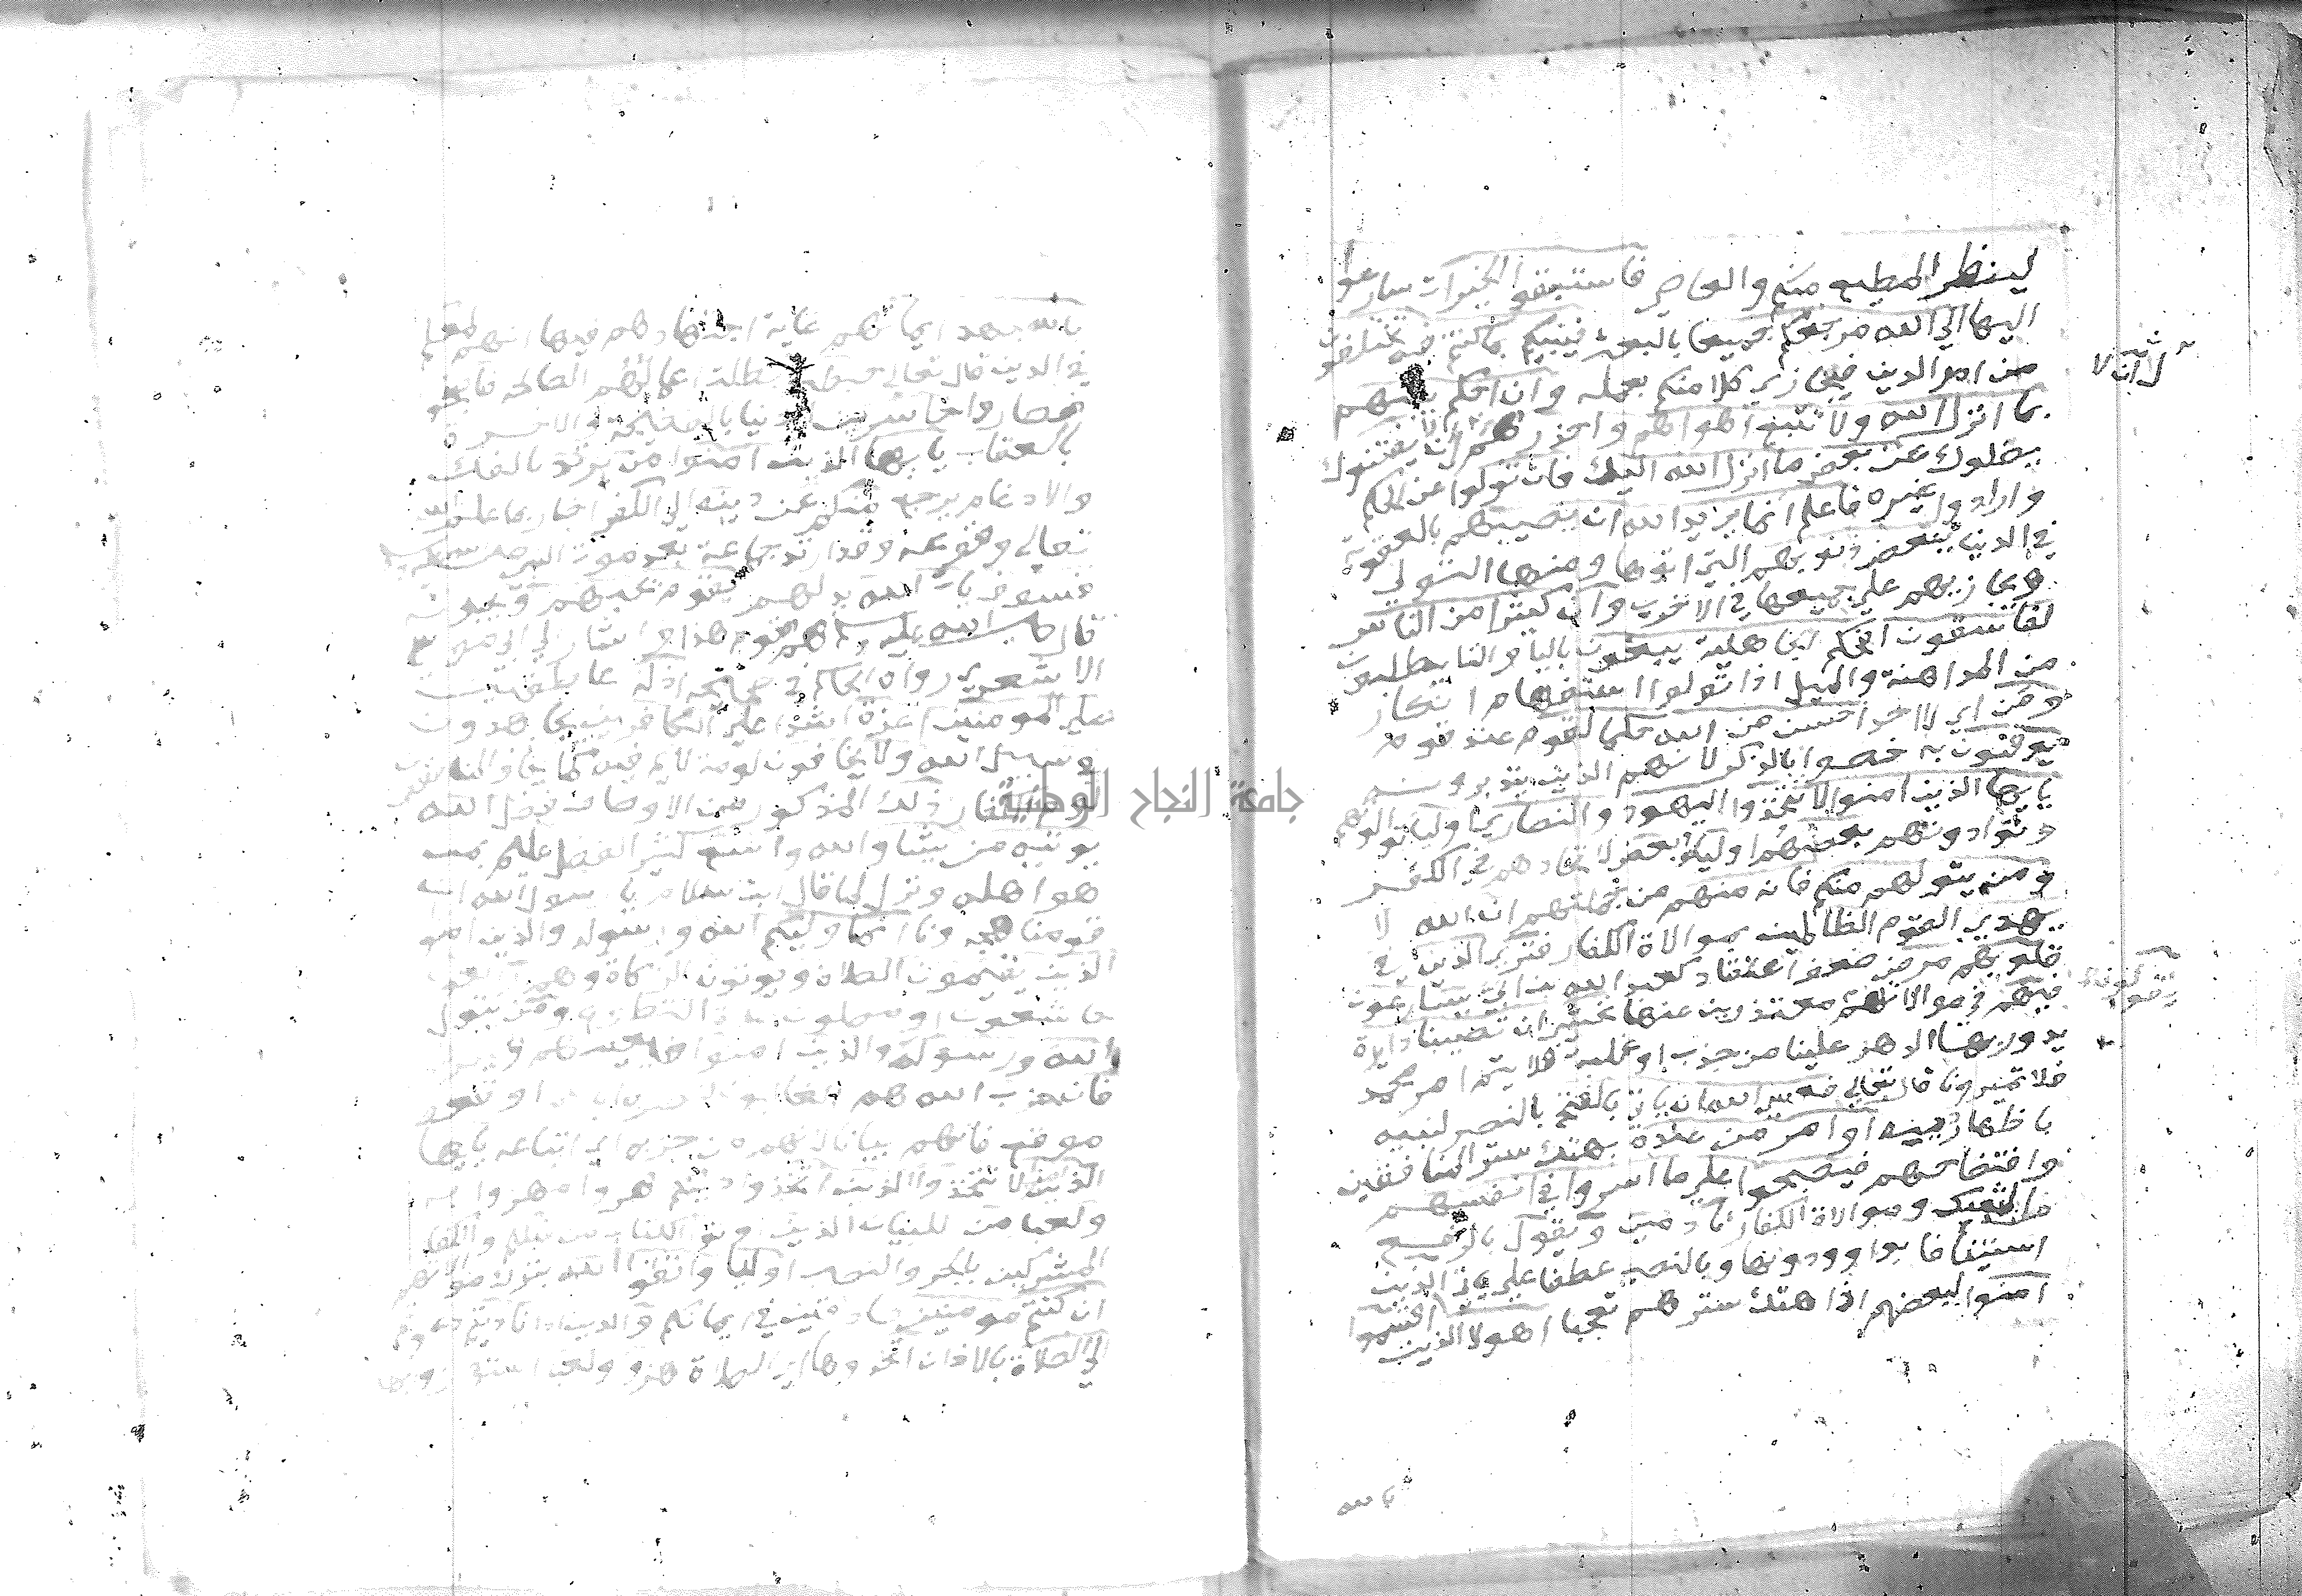 لينظر المطيع منكم والعاصي فاستبقوا الخيرات سارعوا
اليها الي الله مرجعكم جميعا بالبعث فينبيكم بما كنتم فيه تختلفون
من امر الدين فيجازي كلا منكم بعمله وان احكم بينهم
بما انزل الله ولا تتبع اهواهم واحذرهم ان يفتنوك
يضلوك عن بعض ما انزل الله اليك فان تولوا عن الحكم
وارادوا غيره فاعلم انما يريد الله ان يصيبهم بالعقوبة
في الدنيا ببعض ذنوبهم التي اتوها ومنها التولي
ويجازيهم علي جميعها في الاخري وان كثيرا من الناس
لفاسقون افحكم الجاهلية يبغون باليا والتا يطلبون
من المداهنة والميل اذا تولوا استفهام انكار
ومن اي لا احد احسن من الله حكما لقوم عند قوم
يوقنون به خصوا بالذكر لانهم الذين يتدبرونه
يايها الذين امنوا لا تتخذوا اليهود والنصاري اوليا توالونهم
وتوادونهم بعضهم اوليا بعض لاتحادهم في الكفر
ومن يتولهم منكم فانه منهم من جملتهم ان الله لا
يهدي القوم الظالمين بموالاة الكفار فتري الذين في
قلوبهم مرض ضعف اعتقاد كعبد الله بن ابي يسارعون
فيهم في موالاتهم معتذرين عنها نخشي ان تصيبنا دايرة
يدور بها الدهر علينا من جدب او غلبة فلا يتم امر محمد
فلا تميرونا قال تعالي فعسي الله ان ياتي بالفتح بالنصر لنبيه
باظهار دينه او امر من عنده بهتك ستر المنافقين
وافتضاحهم فيصبحوا علي ما اسروا في انفسهم
من الشك وموالاة الكفار نادمين ويقول بالرفع
استينافا بواو ودونها وبالنصب عطفا علي ياتي الذين
امنوا لبعضهم اذا هتك سترهم تعجبا اهولا الذين اقسموا
بالله
بالله جهد ايمانهم غاية اجتهادهم فيها انهم لمعكم
في الدين قال تعالي حبطت بطلت اعمالهم الصالحة فاصبحوا
فصاروا خاسرين الدنيا بالفضيحة والاخرة
بالعقاب يايها الذين امنوا من يرتد بالفك
والادغام يرجع منكم عن دينه الي الكفر اخبار بما علم الله
تعالي وقوعه وقد ارتد جماعة بعد موت النبي
فسوف يات الله بدلهم بقوم يحبهم ويحبونه
قال صلي الله عليه وسلم هم قوم هذا واشار الي ابي موسي
الاشعري رواه الحاكم في صحيحه اذلة عاطفين
علي المومنين اعزة اشدا علي الكافرين يجاهدون
في سبيل الله ولا يخافون لومة لايم فيه كما يخاف المنافقون
لوم الكفار ذلك المذكور من الاوصاف فضل الله
يوتيه من يشا والله واسع كثير الفضل عليم بمن
هو اهله ونزل لما قال ابن سلام يا رسول الله ان
قومنا هجرونا انما وليكم الله ورسوله والذين امنوا
الذين يقيمون الصلاة ويوتون الزكاة وهم راكعون
خاشعون او يصلون صلاة التطوع ومن يتول
الله ورسوله والذين امنوا فيعينهم
فان حزب الله هم الغالبون
موقع فانهم بيانا لانهم من حزبه اي اتباعه يايها
الذين امنوا لا تتخذوا الذين اتخذوا دينكم هزوا مهزوا به
ولعبا من للبيان الذين اوتوا الكتاب من قبلكم والكفار
المشركين بالجر والنصب اوليا واتقوا الله بترك موالاتهم
ان كنتم مومنين صادقين في ايمانكم والذين اذا ناديتم دعوتم
الي الصلاة بالاذان اتخذوها اي الصلاة هزوا ولعبا
جامعة النجاح الوطنية